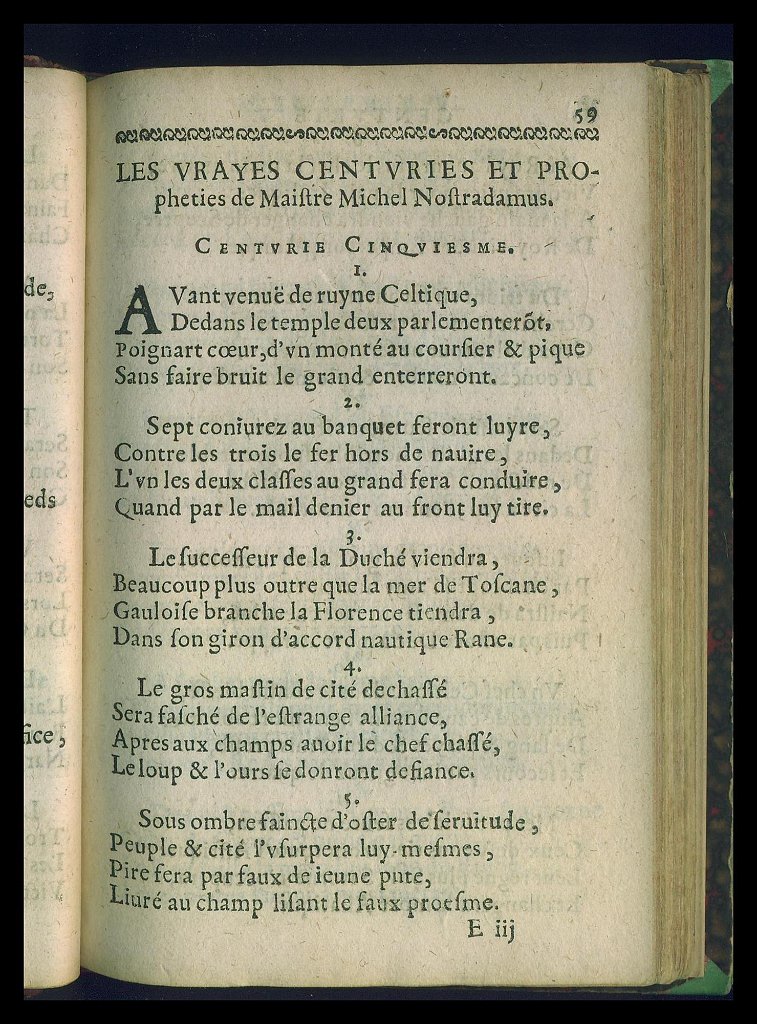 59
LES VRAYES CENTVRIES ET PRO-
pheties de Maiſtre Michel Noſtradamus.
CENTVRIE CINQVIESME.
1.
AVant venuë de ruyne Celtique,
Dedans le temple deux parlementerõt,
Poignart cœur, d'vn monté au courſier & pique
Sans faire bruit le grand enterreront.
2.
Sept coniurez au banquet feront luyre,
Contre les trois le fer hors de nauire,
L'vn les deux claſſes au grand fera conduire,
Quand par le mail denier au front luy tire.
3.
Le ſucceſſeur de la Duché viendra,
Beaucoup plus outre que la mer de Toſcane,
Gauloiſe branche la Florence tiendra,
Dans ſon giron d'accord nautique Rane.
4.
Le gros maſtin de cité dechaſſé
Sera faſché de l'eſtrange alliance,
Apres aux champs auoir le chef chaſſé,
Le loup & l'ours ſe donront defiance.
5.
Sous ombre faincte d'oſter de ſeruitude,
Peuple & cité l'vſurpera luy-meſmes,
Pire fera par faux de ieune pute,
Liuré au champ liſant le faux proeſme.
E iij
de,
eds
fice,